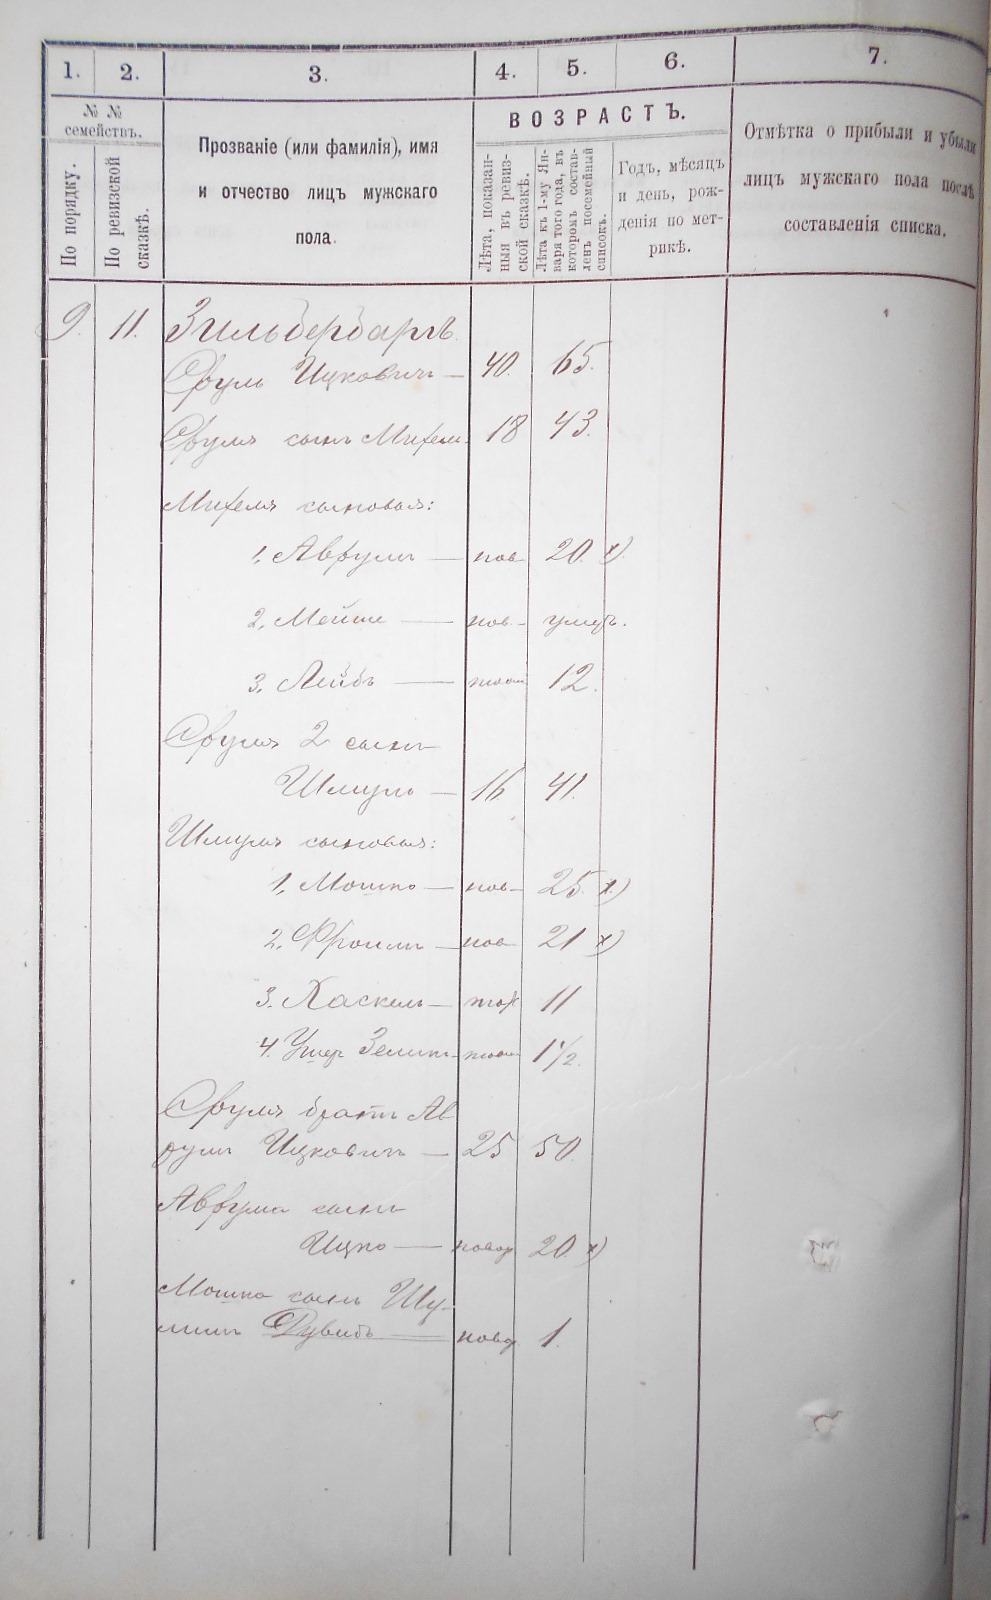 1.
2.
3.
4.
5.
6.
7.
№ №
семействъ.
По порядку.
По ревизской
сказкѣ.
Прозваніе (или фамилія), имя
и отчество лицъ мужскаго
пола.
ВОЗРАСТЪ.
Лѣта, показан-
ныя въ ревиз-
ской сказкѣ.
Лѣта къ 1-му Ян-
варя того года, въ
которомъ состав-
ленъ посемейный
списокъ.
Годъ, мѣсяцъ
и день, рож-
денія по мет-
рикѣ.
Отмѣтка о прибыли и убыли
лицъ мужскаго пола послѣ
составленія списка.
9. 11. Зильбербаргъ
Сруль Ицковичъ — 40. 65.
Сруля сынъ Михель 18 43.
Михеля сыновья:
1. Аврумъ — нов 20. х)
2. Мейше — нов — умеръ.
3. Лейбъ — тож 12.
Сруля 2 сынъ
Шмуль — 16 41.
Шмуля сыновья:
1. Мошко — нов — 25. х.)
2. Фроимъ — нов 21 х)
3. Хаскель — тож 11
4. Ушер Зелиг тож 1 1/2.
Сруля братъ Ав
румъ Ицковичъ — 25 50.
Аврума сынъ
Ицко — новор 20. х)
Мошка сынъ Шу-
лимъ Дувидъ — новор 1.